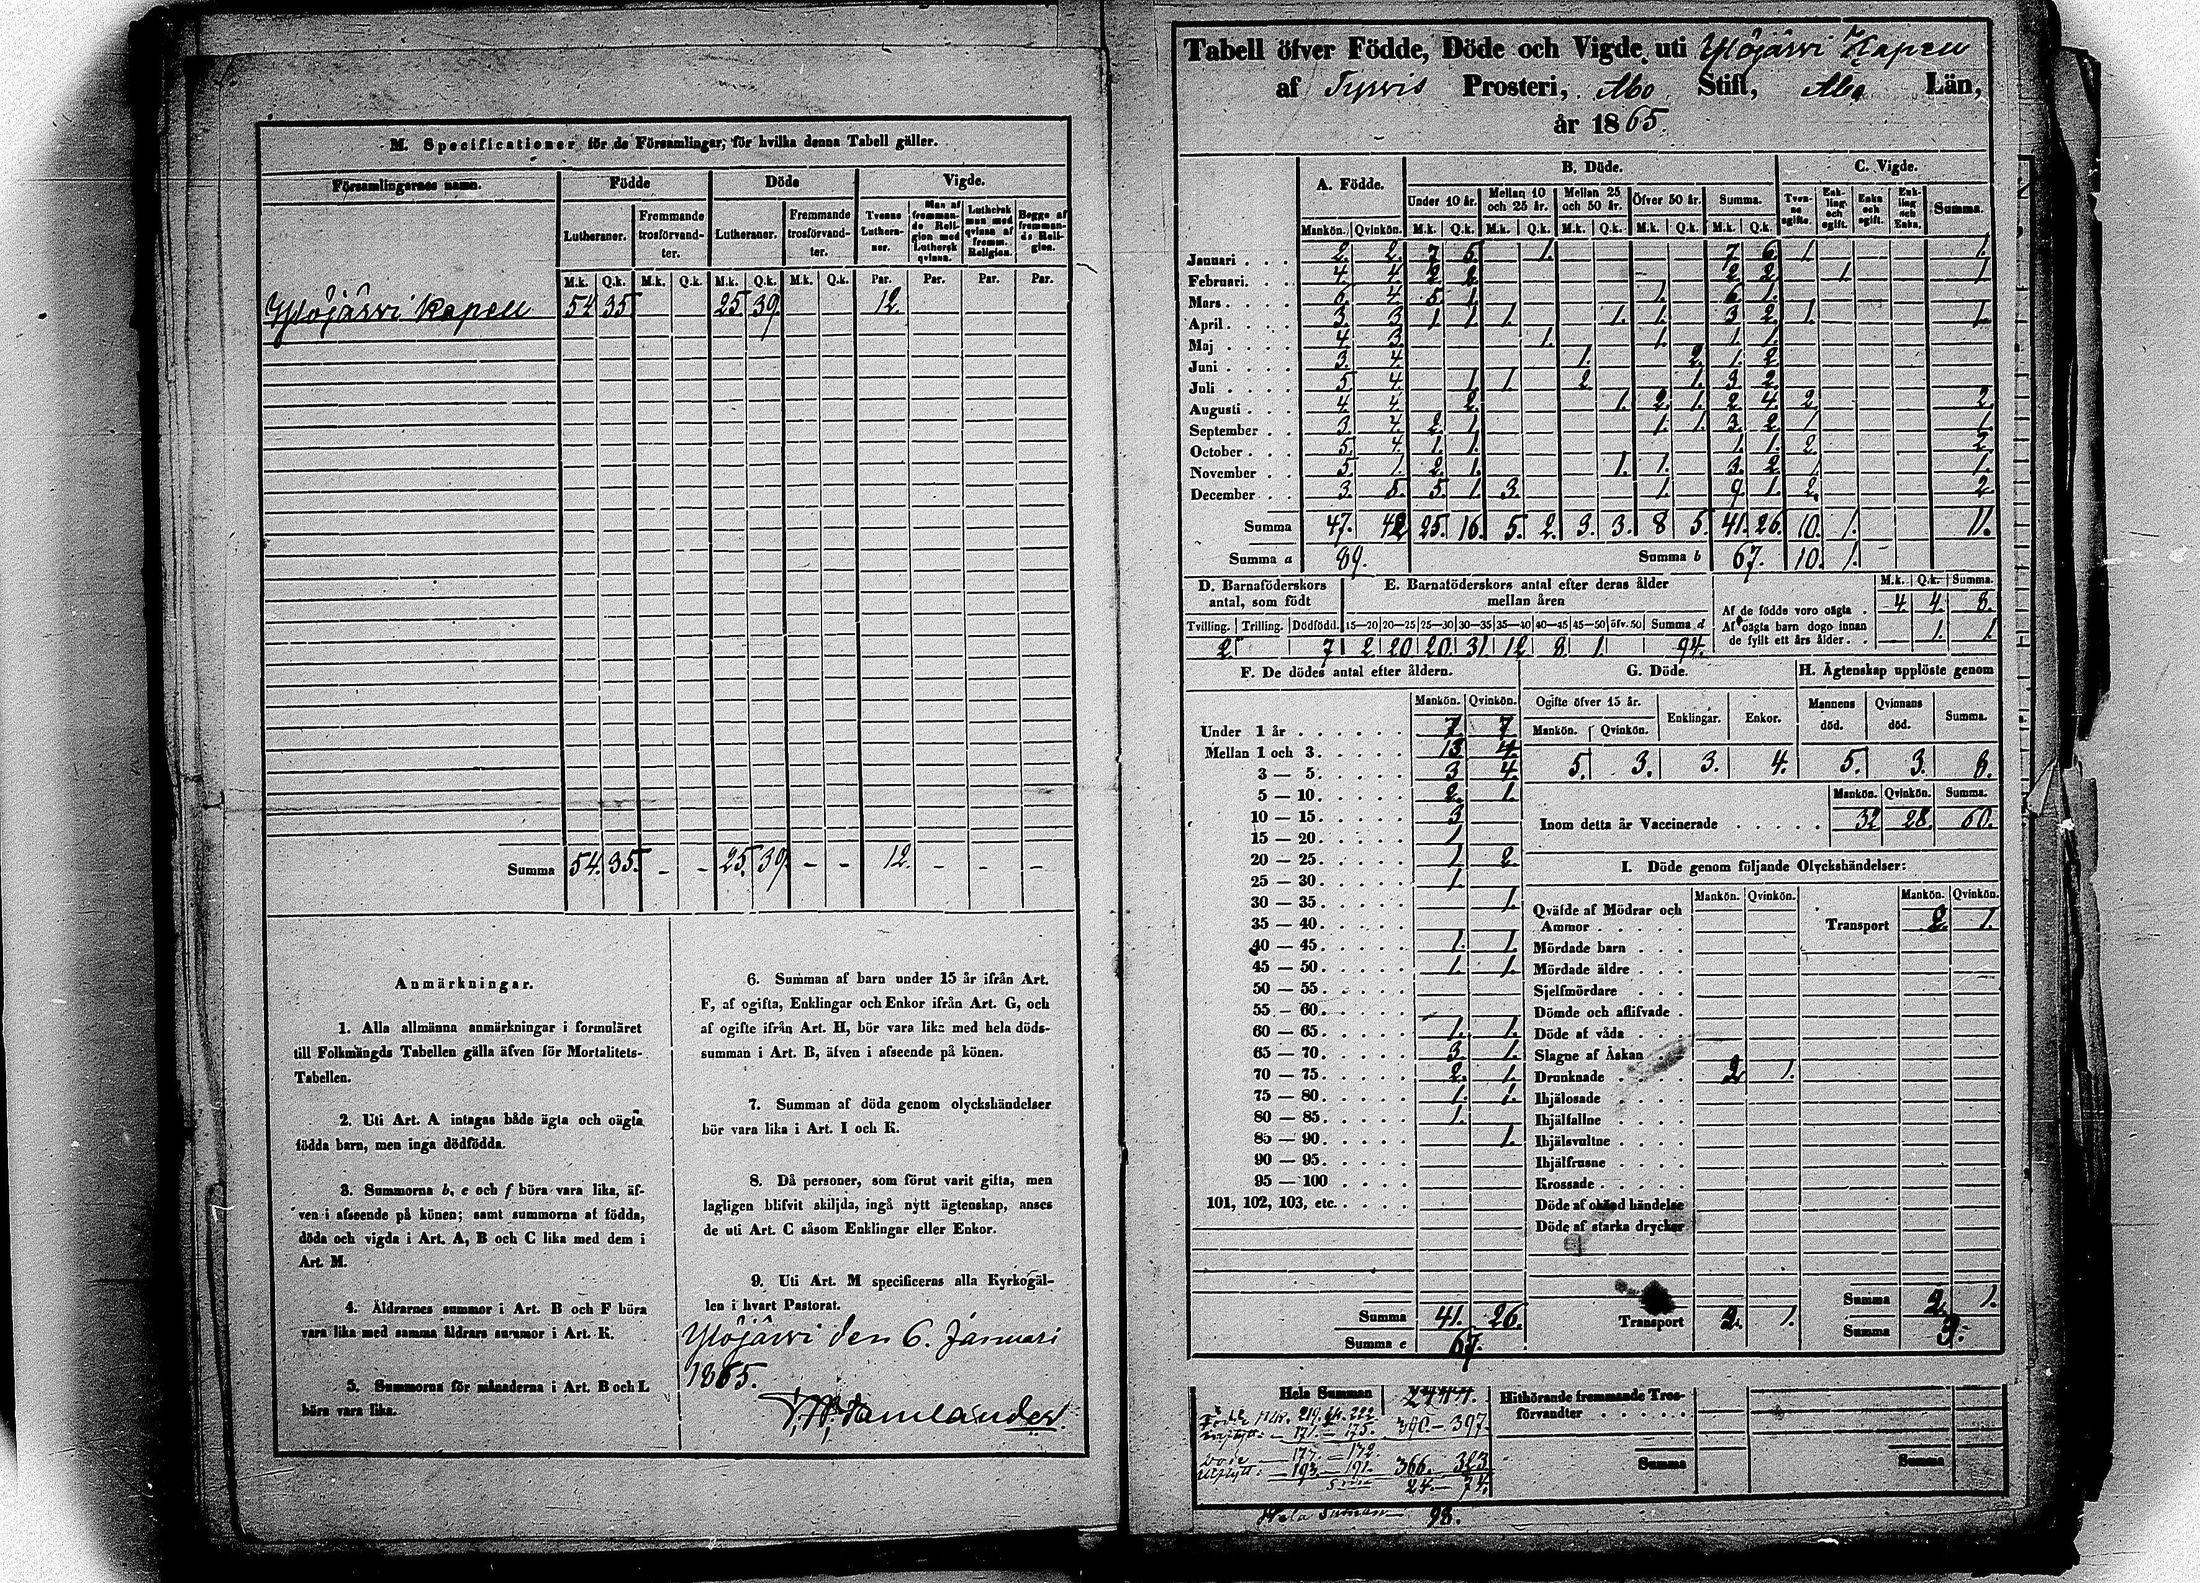 M. Specificationer för de Församlingar, för hvilka denna Tabell gäller.
Församlingarnes namn. Födde Döde Vigde.
Lutheraner. Fremmande trosförvandter. Lutheraner. Fremmande trosförvandter. Tvenne Lutheraner. Man af fremmande Religion med Luthersk qvinna. Luthersk man med qvinna af fremm. Religion. Begge af fremmande Religion.
M.k. Q.k. M.k. Q.k. M.k. Q.k. M.k. Q.k. Par. Par. Par. Par.
Ylöjärvi Kapell 54 35 25 39. 12.
Summa 54. 35. - - 25. 39. - - 12. - - -
Anmärkningar.
1. Alla allmänna anmärkningar i formuläret
till Folkmängds Tabellen gälla äfven för Mortalitets-
Tabellen.
2. Uti Art. A intagas både ägta och oägta
födda barn, men inga dödfödda.
3. Summorna b, e och f böra vara lika, äf-
ven i afseende på könen; samt summorna af födda,
döda och vigda i Art. A, B och C lika med dem i
Art. M.
4. Åldrarnes summor i Art. B och F böra
vara lika med samma åldrars summor i Art. K.
5. Summorna för månaderna i Art. B och L
böra vara lika.
6. Summan af barn under 15 år ifrån Art.
F, af ogifta, Enklingar och Enkor ifrån Art. G, och
af ogifte ifrån Art. H, bör vara lika med hela döds-
summan i Art. B, äfven i afseende på könen.
7. Summan af döda genom olyckshändelser
bör vara lika i Art. I och K.
8. Då personer, som förut varit gifta, men
lagligen blifvit skiljda, ingå nytt ägtenskap, anses
de uti Art. C såsom Enklingar eller Enkor.
9. Uti Art. M specificeras alla Kyrkogäl-
len i hvart Pastorat.
Ylöjärvi den 6. Januari
1865.
Tabell öfver Födde, Döde och Vigde uti Ylöjärvi Kapell
af Tyrvis Prosteri, Åbo Stift, Åbo Län,
år 1865.
A. Födde. B. Döde. C. Vigde.
Under 10 år. Mellan 10 och 25 år. Mellan 25 och 50 år. Öfver 50 år. Summa. Tvenne ogifte. Enkling och ogift. Enka och ogift. Enkling och Enka. Summa.
Mankön. Qvinkön. M.k. Q.k. M.k. Q.k. M.k. Q.k. M.k. Q.k. M.k. Q.k.
Januari 2. 2. 7 5. 1. 7 6 1 1.
Februari 4 4 2 2 2 2 1 1
Mars 6. 4 5. 1. 1. 6 1.
April 3. 3 1. 1. 1. 1. 1. 3 2 1. 1.
Maj 4 3 1. 1. 1. 1.
Juni 3. 4. 1. 2 1. 2
Juli 5 4. 1. 1. 2 1. 3 2
Augusti 4 4. 2. 1. 2 1. 2 4 2. 2.
September 3 4. 2 1. 1 1. 3 2 1 1.
October 5. 4. 1. 1. 1. 1. 2. 2
November 5 1. 2. 1. 1. 1. 3. 2 1. 1.
December 3. 5. 5. 1. 3. 1. 9 1. 2. 2
Summa 47. 42 25. 16. 5. 2. 3. 3. 8 5. 41. 26. 10. 1. 11.
Summa a 89. Summa b 67. 10. 1.
D. Barnaföderskors antal, som födt E. Barnaföderskors antal efter deras ålder mellan åren
M.k. Q.k. Summa.
Af de födde voro oägta 4 4. 8.
Af oägta barn dogo innan
de fyllt ett års ålder 1. 1.
Tvilling. Trilling. Dödfödd. 15—20 20—25 25—30 30—35 35—40 40—45 45—50 öfv. 50 Summa d
2 7 2 20 20 31 12 8 1. 94.
F. De dödes antal efter åldern. G. Döde. H. Ägtenskap upplöste genom
Mankön. Qvinkön. Ogifte öfver 15 år. Enklingar. Enkor. Mannens död. Qvinnans död. Summa.
Mankön. Qvinkön.
5. 3. 3. 4. 5. 3. 8.
Under 1 år 7 7
Mellan 1 och 3. 13 4.
3 — 5. 3 4.
5 — 10. 2. 1.
10 — 15. 3
15 — 20. 1
20 — 25. 1 2
25 — 30. 1.
30 — 35. 1.
35 — 40.
40 — 45. 1. 1.
45 — 50. 1. 1.
50 — 55.
55 — 60.
60 — 65. 1. 1.
65 — 70. 3 1.
70 — 75. 2. 1.
75 — 80. 1. 1.
80 — 85. 1.
85 — 90. 1.
90 — 95.
95 — 100
101, 102, 103, etc.
Summa 41. 26.
Summa e 67.
Mankön. Qvinkön. Summa.
Inom detta år Vaccinerade 32 28. 60.
I. Döde genom följande Olyckshändelser:
Mankön. Qvinkön. Mankön. Qvinkön.
Qväfde af Mödrar och
Ammor
Transport 2. 1.
Mördade barn
Mördade äldre
Sjelfmördare
Dömde och aflifvade
Döde af våda
Slagne af Åskan
Drunknade 2 1.
Ihjälosade
Ihjälfallne
Ihjälsvultne
Ihjälfrusne
Krossade
Döde af okänd händelse
Döde af starka drycker
Summa 2. 1.
Transport 2. 1. Summa 3.
Hela Summan 2444. Hithörande fremmande Tros-
förvandter
Födde Mk. 219. Qk. 222
171. — 175. 390 — 397
Döde — 177. — 172.
— 193. — 191. 366. 323
24. — 74.
Summa Summa
Hela Summan 98.